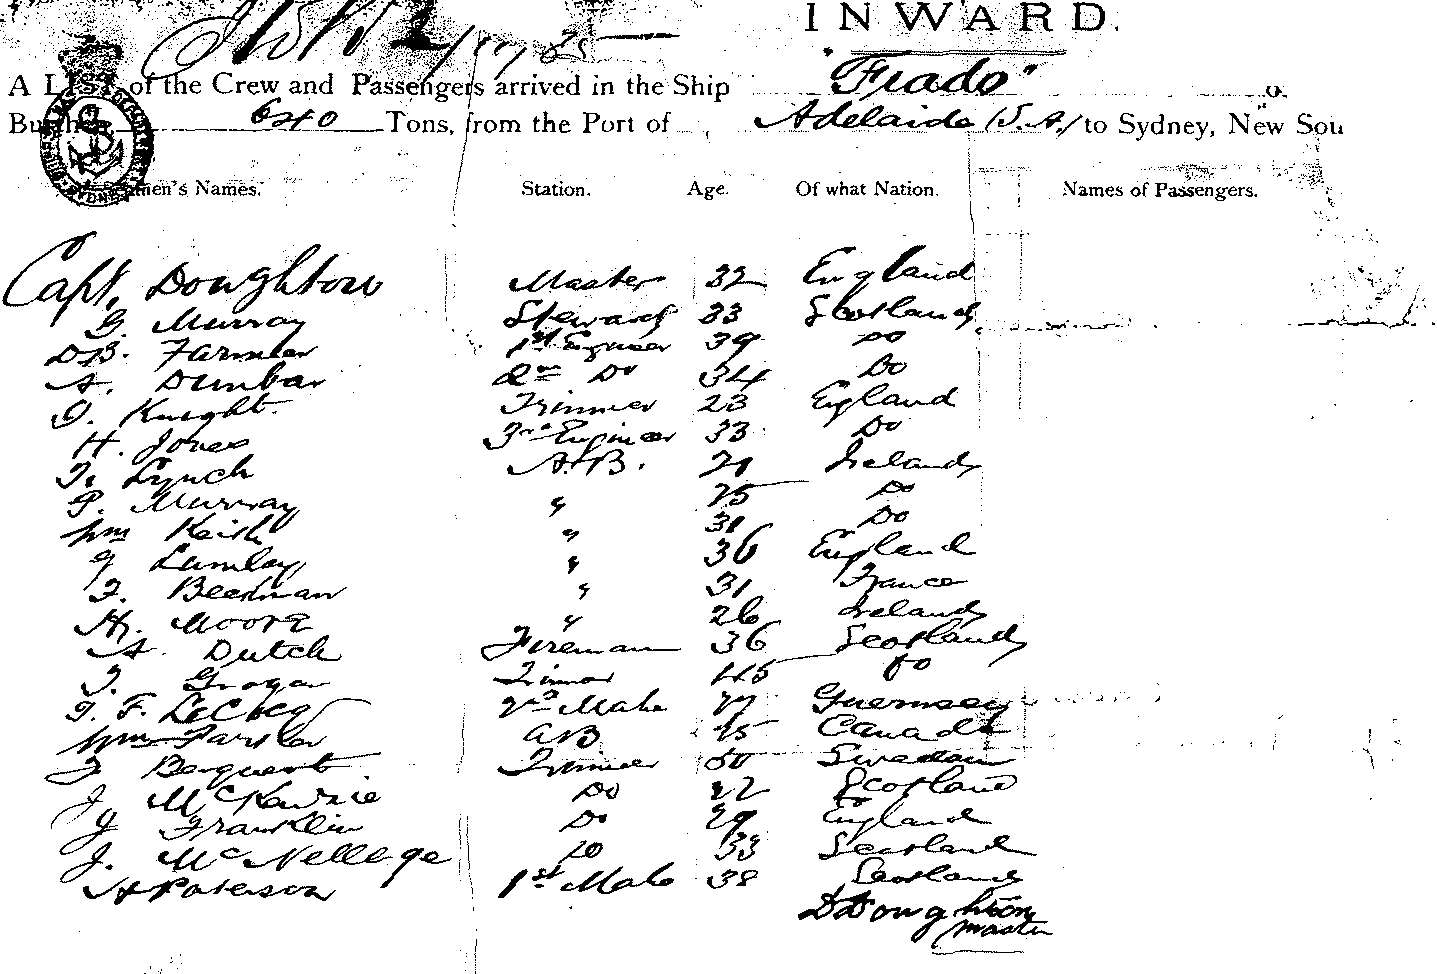 INWARD.
A LIST of the Crew and Passengers arrived in the Ship "Fiado" of
640 Tons, from the Port of Adelaide (S.A.) to Sydney, New Sou
men's Names. Station. Age. Of what Nation. Names of Passengers.
Capt. Doughton Master 32 England
G. Murray Steward 33 Scotland
D.B. Farmer 1st Engineer 39 Do
A. Dunbar 2nd Do 34 Do
G. Knight Trimmer 23 England
H. Jones 3rd Engineer 33 Do
T. Lynch A.B. 21 Ireland
P. Murray " 25 Do
Wm Keith " 31 Do
G Lumley " 36 England
F. Beekman " 31 France
H. Moore " 26 Ireland
A. Dutch Fireman 36 Scotland
T. Grogan Trimmer 45 Do
G. F. LeCocq 2nd Mate 27 Guernsey
Wm AB 25 Canada
J Trimmer 50 Sweden
J McKenzie Do 22 Scotland
J Franklin Do 29 England
J. McNellege Do 33 Scotland
A Paterson 1st Mate 38 Scotland
D Doughton
Master